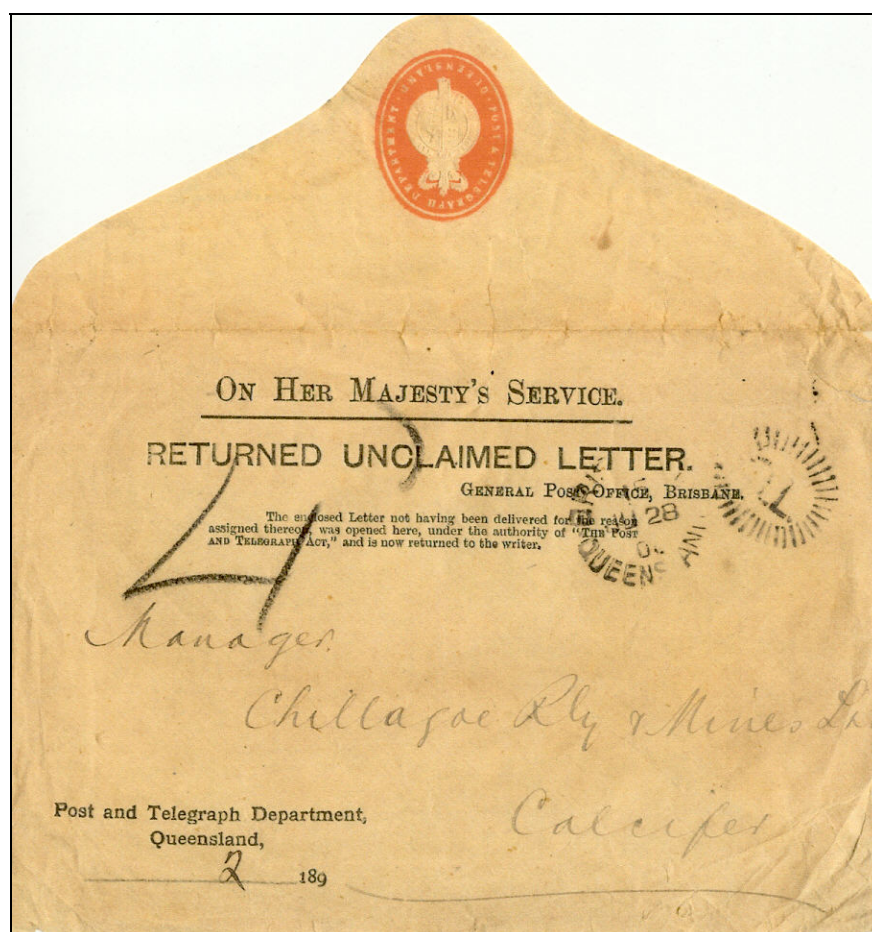 QUEENSLAND · POST & TELEGRAPH DEPARTMENT ·
ON HER MAJESTY'S SERVICE.
RETURNED UNCLAIMED LETTER.
GENERAL POST OFFICE, BRISBANE.
The enclosed Letter not having been delivered for the reason
assigned thereon, was opened here, under the authority of "THE POST
AND TELEGRAPH ACT," and is now returned to the writer.
28
QUEENSLAND
4
Manager.
Chillagoe Rly & Mines
Calcifer
Post and Telegraph Department,
Queensland,
2 189